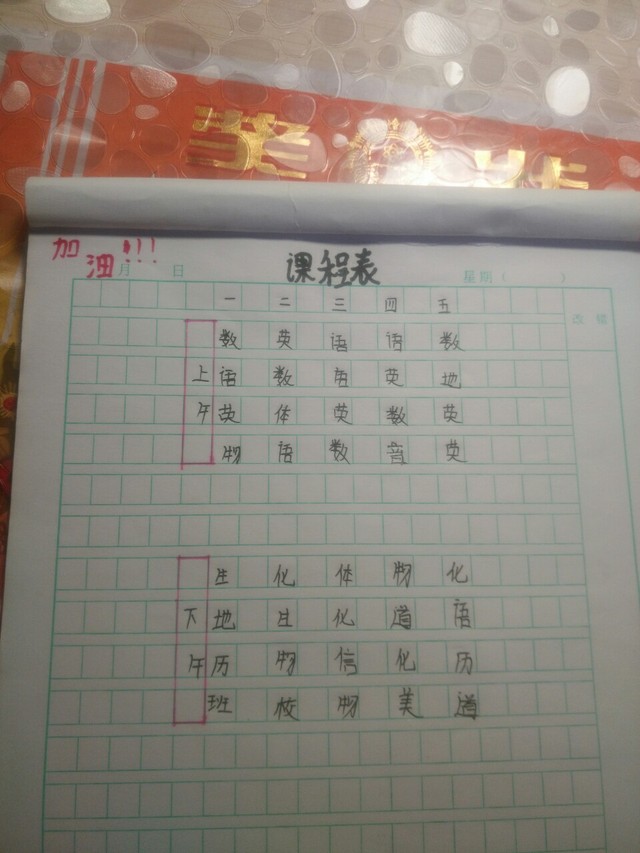 奖
加油!!!
月 日
课程表
星期( )
改错
一 二 三 四 五
数 英 语 语 数
上 语 数 语 英 地
午 英 体 英 数 英
物 语 数 音 英
生 化 体 物 化
下 地 生 化 道 语
午 历 物 信 化 历
班 校 物 美 道